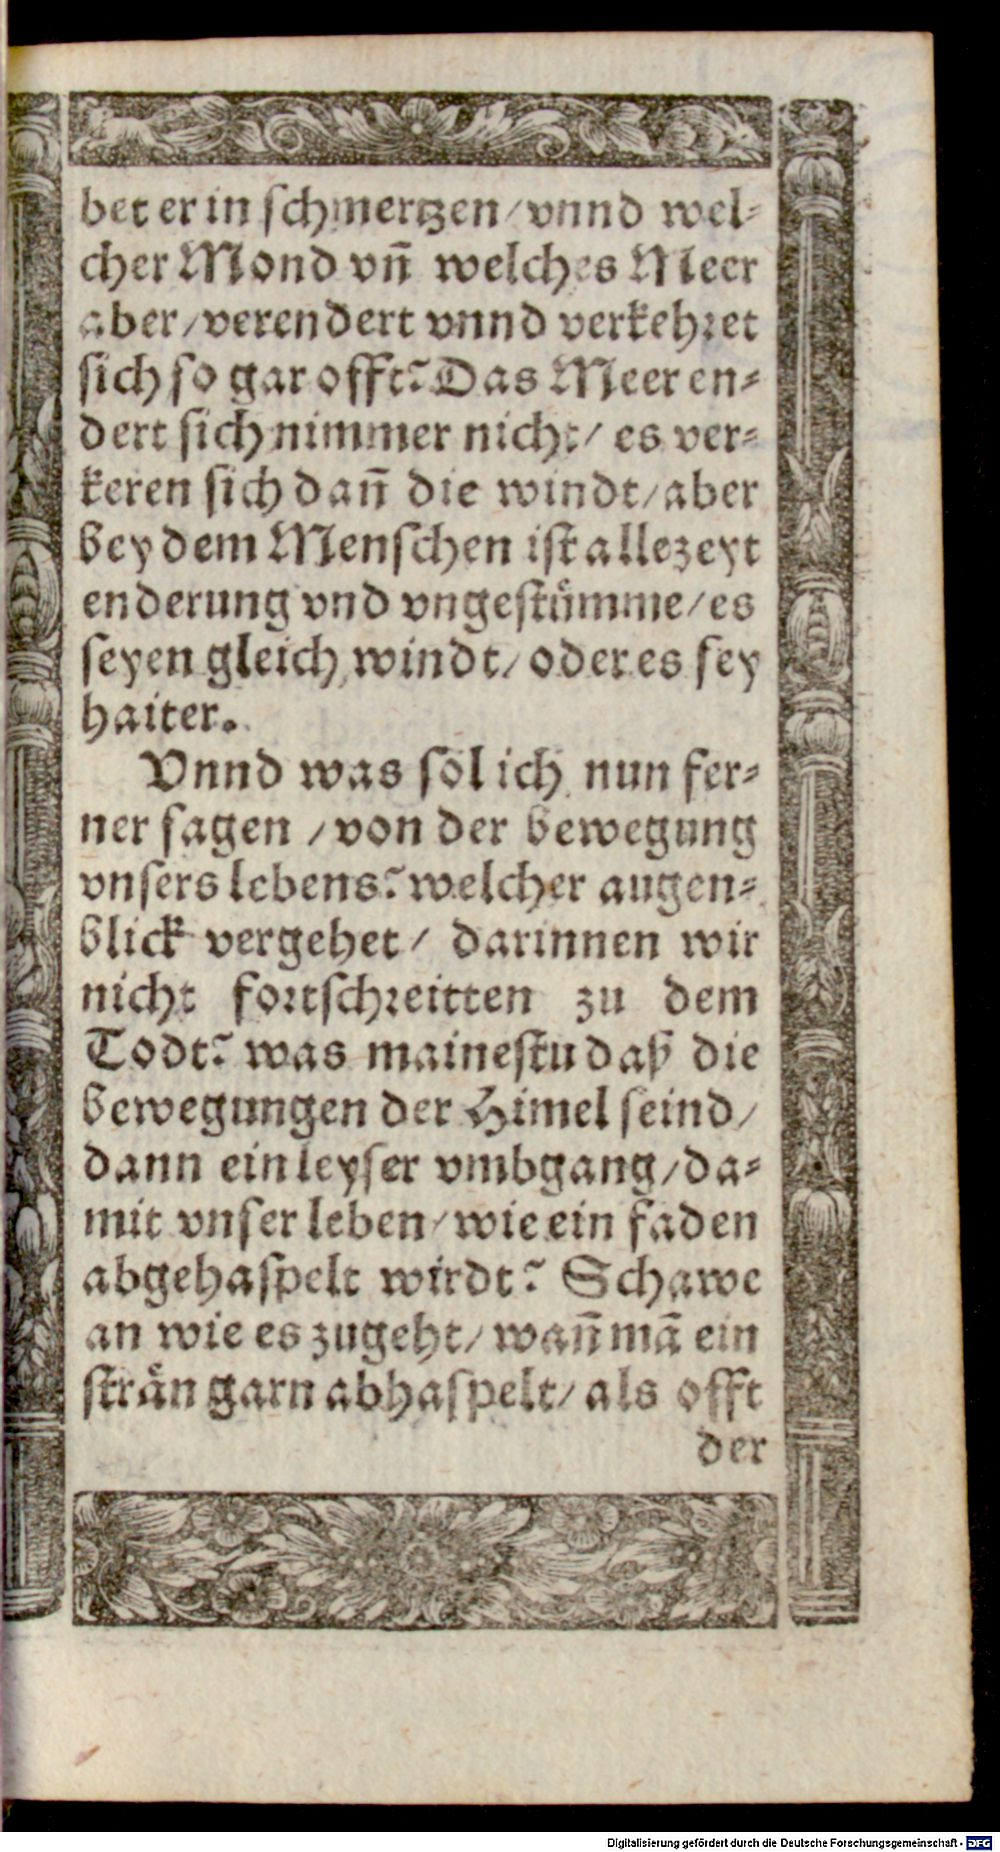 bet er in ſchmertzen / vnnd wel⸗
cher Mond vñ welches Meer
aber / verendert vnnd verkehret
ſich ſo gar offt? Das Meer en⸗
dert ſich nimmer nicht / es ver⸗
keren ſich dañ die windt / aber
bey dem Menſchen iſt allezeyt
enderung vnd vngeſtuͤmme / es
ſeyen gleich windt / oder es ſey
haiter.
Vnnd was ſol ich nun fer⸗
ner ſagen / von der bewegung
vnſers lebens? welcher augen⸗
blick vergehet / darinnen wir
nicht fortſchreitten zu dem
Todt? was maineſtu daß die
bewegungen der Himel ſeind /
dann ein leyſer vmbgang / da⸗
mit vnſer leben / wie ein faden
abgehaſpelt wirdt? Schawe
an wie es zugeht / wañ mã ein
ſtraͤn garn abhaſpelt / als offt
der
Digitalisierung gefördert durch die Deutsche Forschungsgemeinschaft - DFG